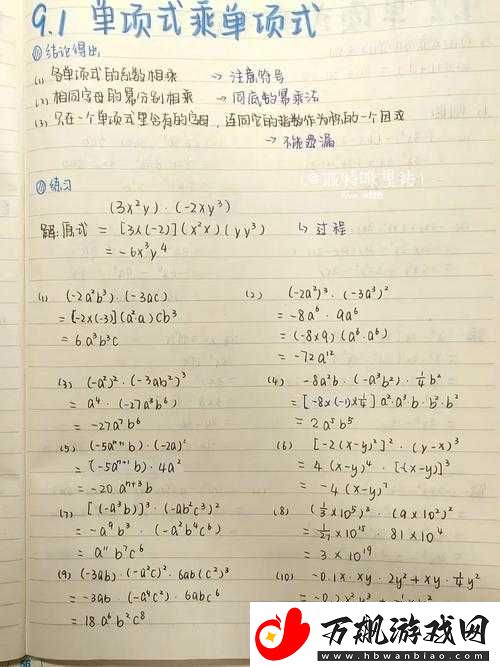 9.1 单项式乘单项式
(1) 结论得出
(1) 各单项式的系数相乘 → 注意符号
(2) 相同字母的幂分别相乘 → 同底数幂乘法
(3) 只在一个单项式里含有的字母，连同它的指数作为积的一个因式
→ 不能遗漏
练习
(3x²y)·(-2xy³)
解:原式 = [3×(-2)](x²x)(yy³) ↳ 过程
= -6x³y⁴
(1) (-2a²b³)·(-3ac)
= [-2×(-3)](a²·a)cb³
= 6a³b³c
(2) (-2a²)³·(-3a³)²
= -8a⁶·9a⁶
= (-8×9)(a⁶·a⁶)
= -72a¹²
(3) (-a²)²·(-3ab²)³
= a⁴·(-27a³b⁶)
= -27a⁷b⁶
(4) -8a²b·(-a³b²)·¼b²
= [-8×(-1)×¼]a²·a³·b·b²·b²
= 2a⁵b⁵
(5) (-5aⁿ⁺¹b)·(-2a)²
= (-5aⁿ⁺¹b)·4a²
= -20aⁿ⁺³b
(6) [-2(x-y)²]²·(y-x)³
= 4(x-y)⁴·[-(x-y)]³
= -4(x-y)⁷
(7) [(-a³b)]³·(-ab²c³)²
= -a⁹b³·(-a²b⁴c⁶)
= a¹¹b⁷c⁶
(8) (⅓×10⁵)³·(9×10²)²
= 1/27×10¹⁵·81×10⁴
= 3×10¹⁹
(9) (-3ab)·(-a²c)²·6ab(c²)³
= -3ab·(-a⁴c²)·6abc⁶
= 18a⁶b²c⁸
(10) -0.1x·xy·2y²+xy·¼y²
万飙游戏网
www.hbwanbiao.com